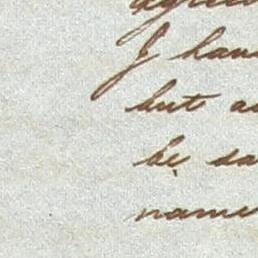 I have
but as
be sa
name